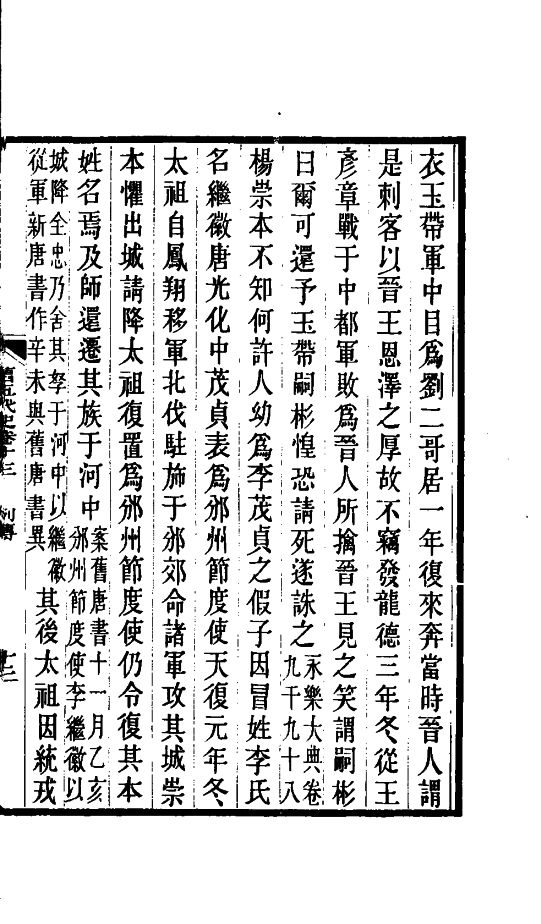 衣玉帶軍中目爲劉二哥居一年復來奔當時晉人謂
是刺客以晉王恩澤之厚故不竊發龍德三年冬從王
彥章戰于中都軍敗爲晉人所擒晉王見之笑謂嗣彬
曰爾可還予玉帶嗣彬惶恐請死遂誅之永樂大典卷
九千九十八
楊崇本不知何許人幼爲李茂貞之假子因冒姓李氏
名繼徽唐光化中茂貞表爲邠州節度使天復元年冬
太祖自鳳翔移軍北伐駐旆于邠郊命諸軍攻其城崇
本懼出城請降太祖復置爲邠州節度使仍令復其本
姓名焉及師還遷其族于河中案舊唐書十一月乙亥
邠州節度使李繼徽以
城降全忠乃舍其孥于河中以繼徽
從軍新唐書作辛未與舊唐書異其後太祖因統戎
舊五代史卷十三 列傳 十二